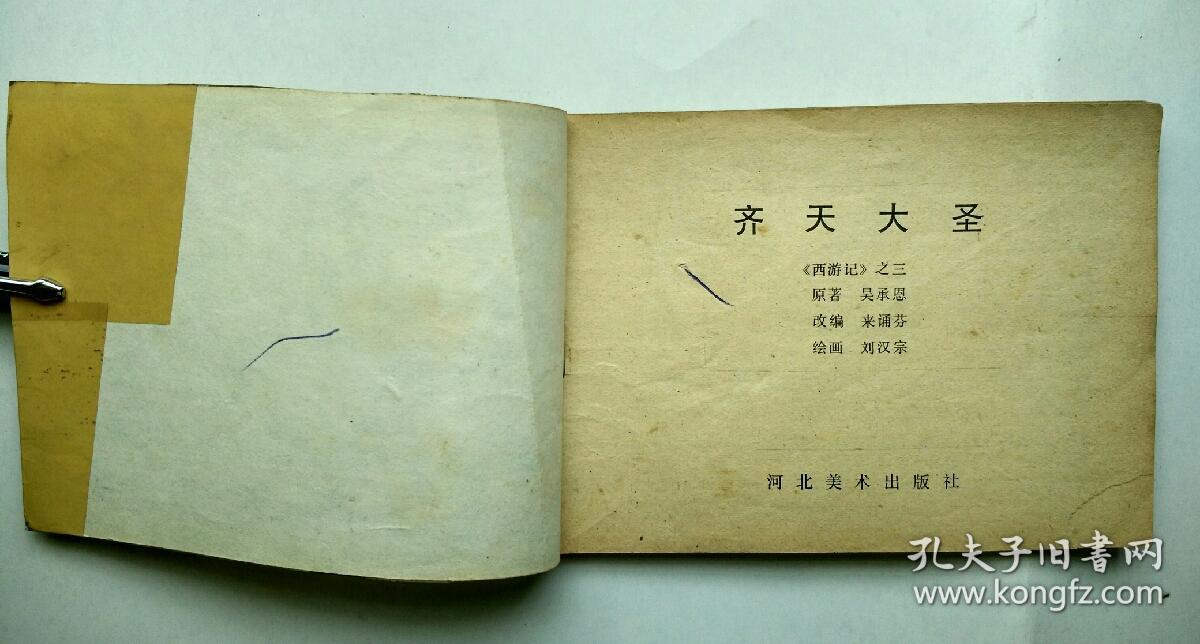 齐天大圣
《西游记》之三
原著 吴承恩
改编 来诵芬
绘画 刘汉宗
河北美术出版社
孔夫子旧书网
www.kongfz.com